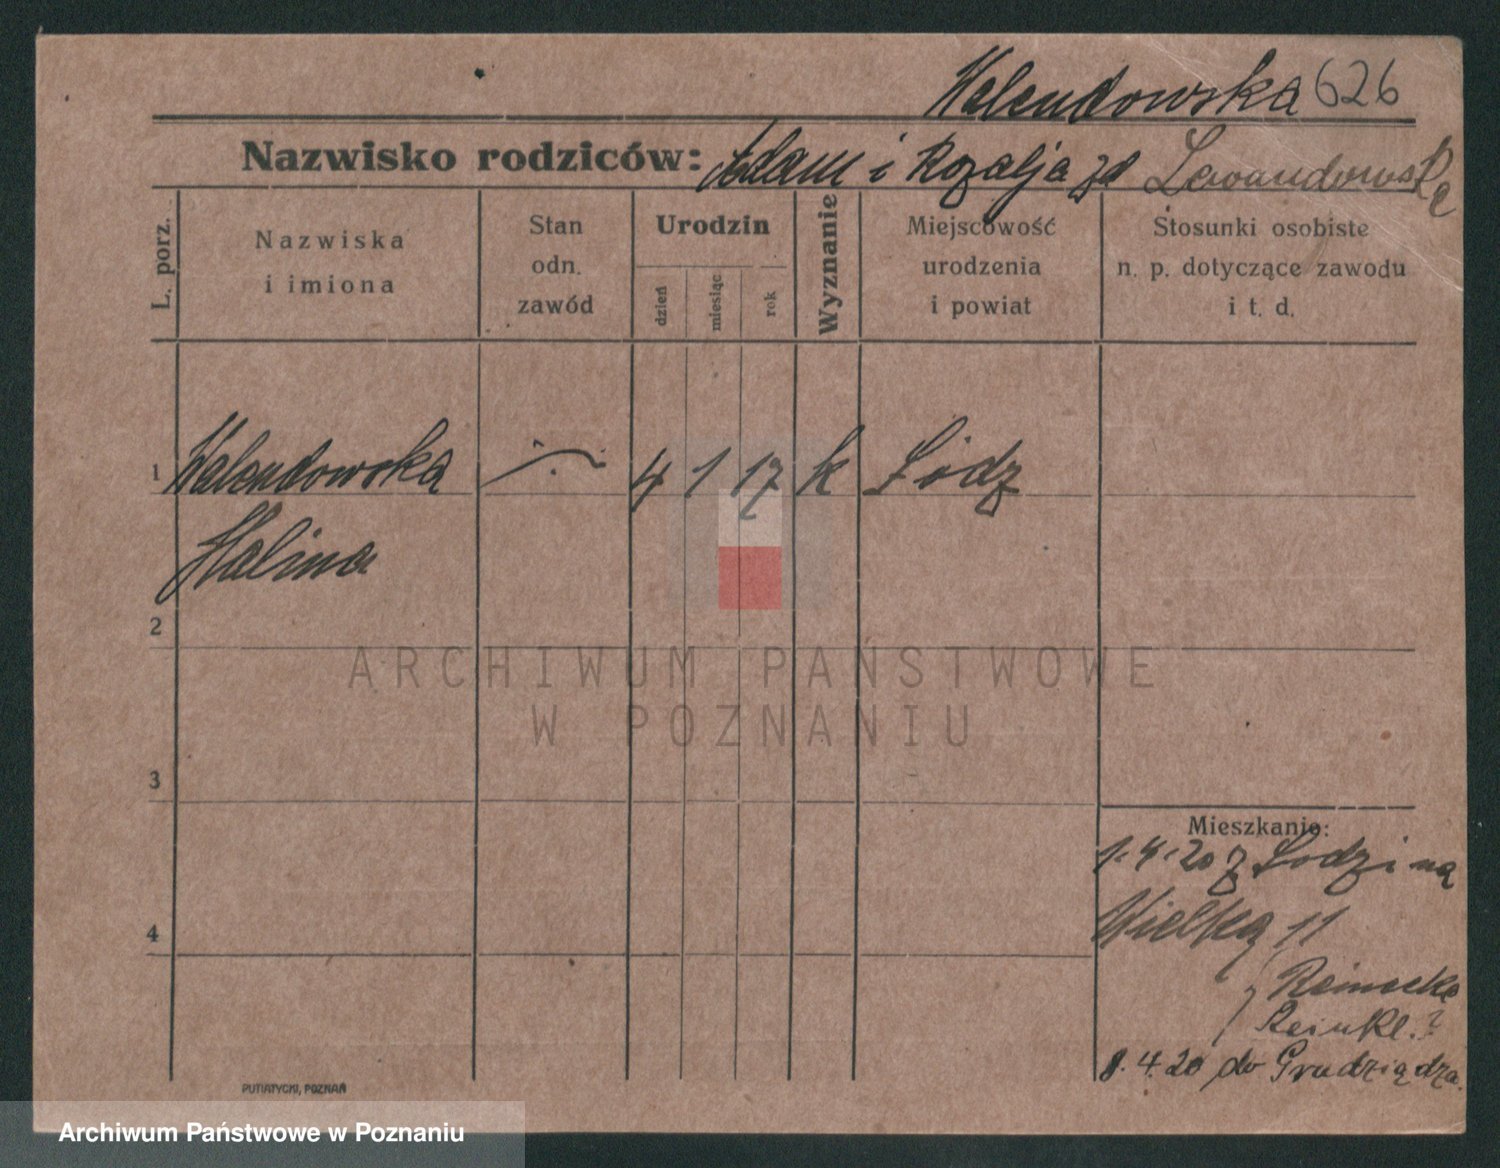 Walendowska 626
Nazwisko rodziców: Adam i Rozalja zd Lewandowska
L. porz.
Nazwiska
i imiona
Stan
odn.
zawód
Urodzin
dzień
miesiąc
rok
Wyznanie
Miejscowość
urodzenia
i powiat
Stosunki osobiste
n. p. dotyczące zawodu
i t. d.
1 Walendowska 4 1 17 k Łódz
Halina
2
3
4
Mieszkanie:
1.4.20 z Łodzi na
Wielką 11
8.4.20 do Grudziądza.
PUTIATYCKI, POZNAŃ
ARCHIWUM PAŃSTWOWE
W POZNANIU
Archiwum Państwowe w Poznaniu